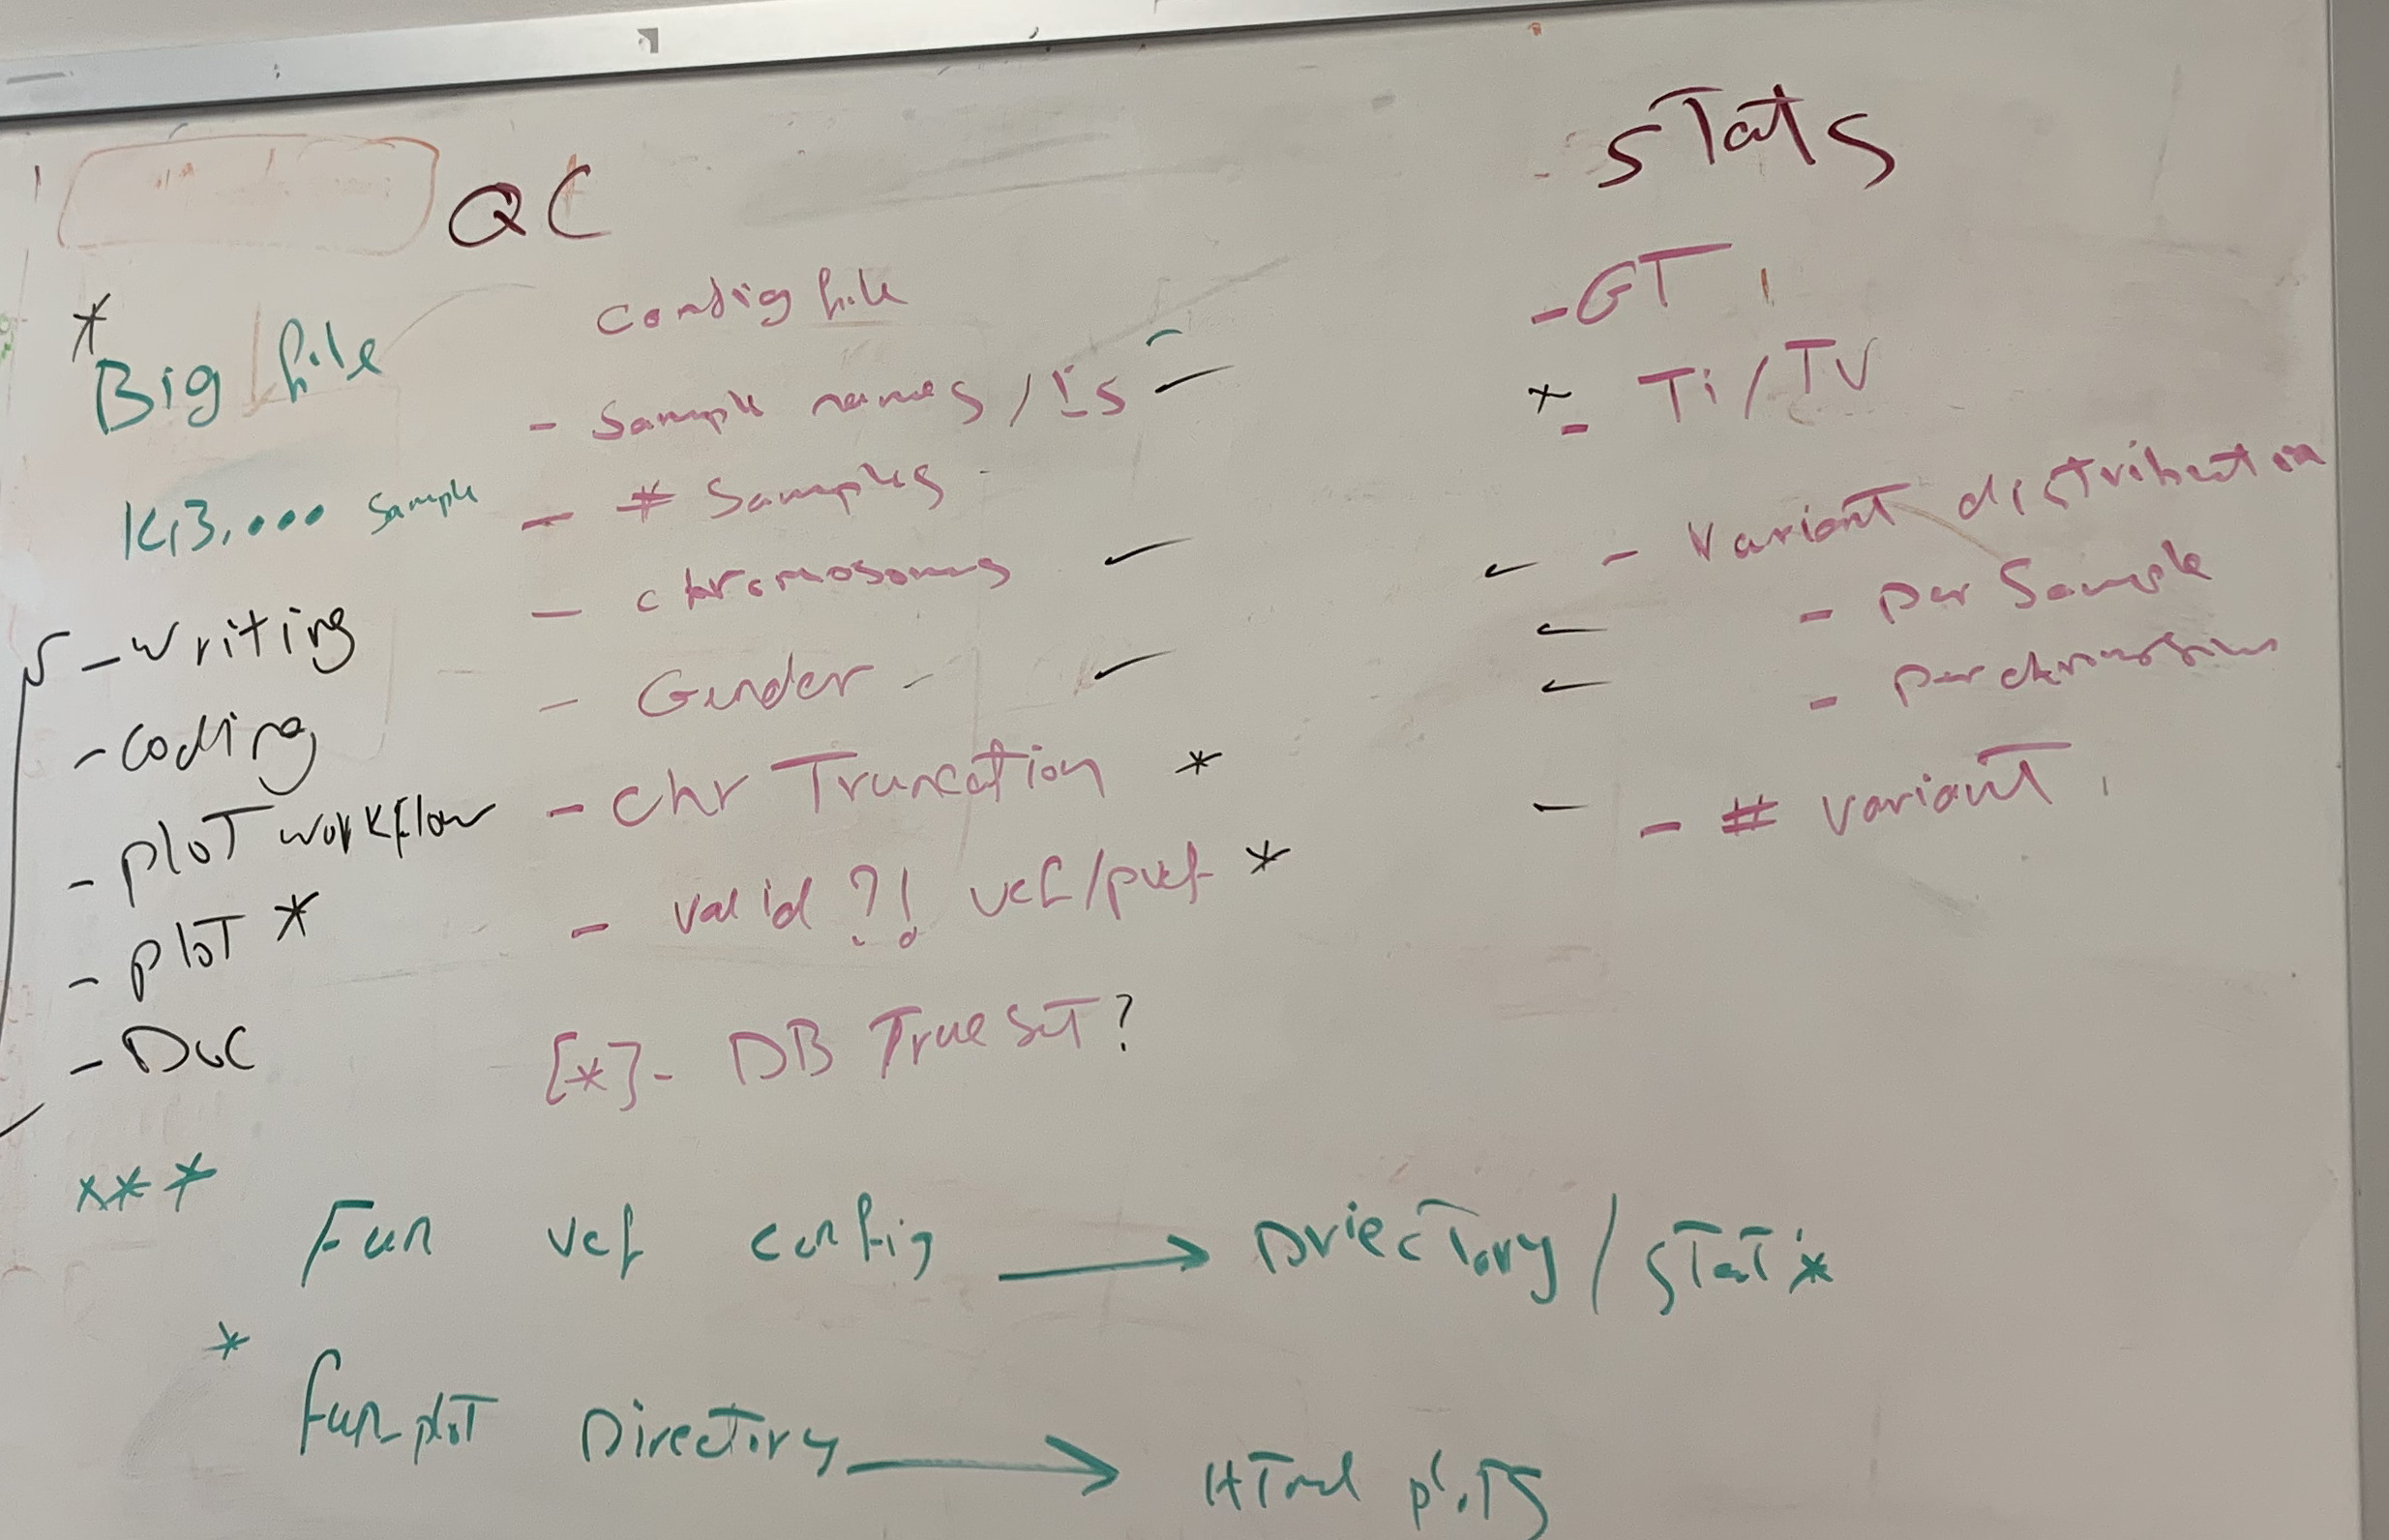 QC
stats
* Big file
sample
- writing
- coding
- ploT workflow
- ploT *
- Doc
config file
- Sample names /
- # Samples
- chromosomes ✓
- Gender - ✓
- chr Truncation *
- valid ?! vcf/pvcf *
[*]- DB True SeT?
- GT
* - Ti/TV
- Variant distribution
- per Sample
- per chromosome
- # varianT
***
Fun vcf config → DriecTory / STaT *
* fun_ploT DirecTory → HTml ploTS